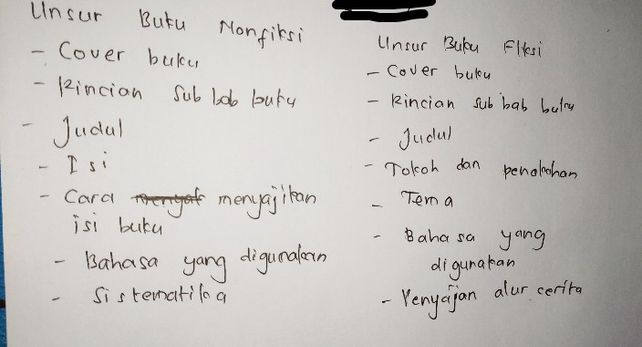 Unsur Buku Nonfiksi
- Cover buku
- Rincian sub bab buku
- Judul
- Isi
- Cara menyajikan
isi buku
- Bahasa yang digunakan
- Sistematika
Unsur Buku Fiksi
- Cover buku
- Rincian sub bab buku
- Judul
- Tokoh dan penokohan
- Tema
- Bahasa yang
digunakan
- Penyajan alur cerita